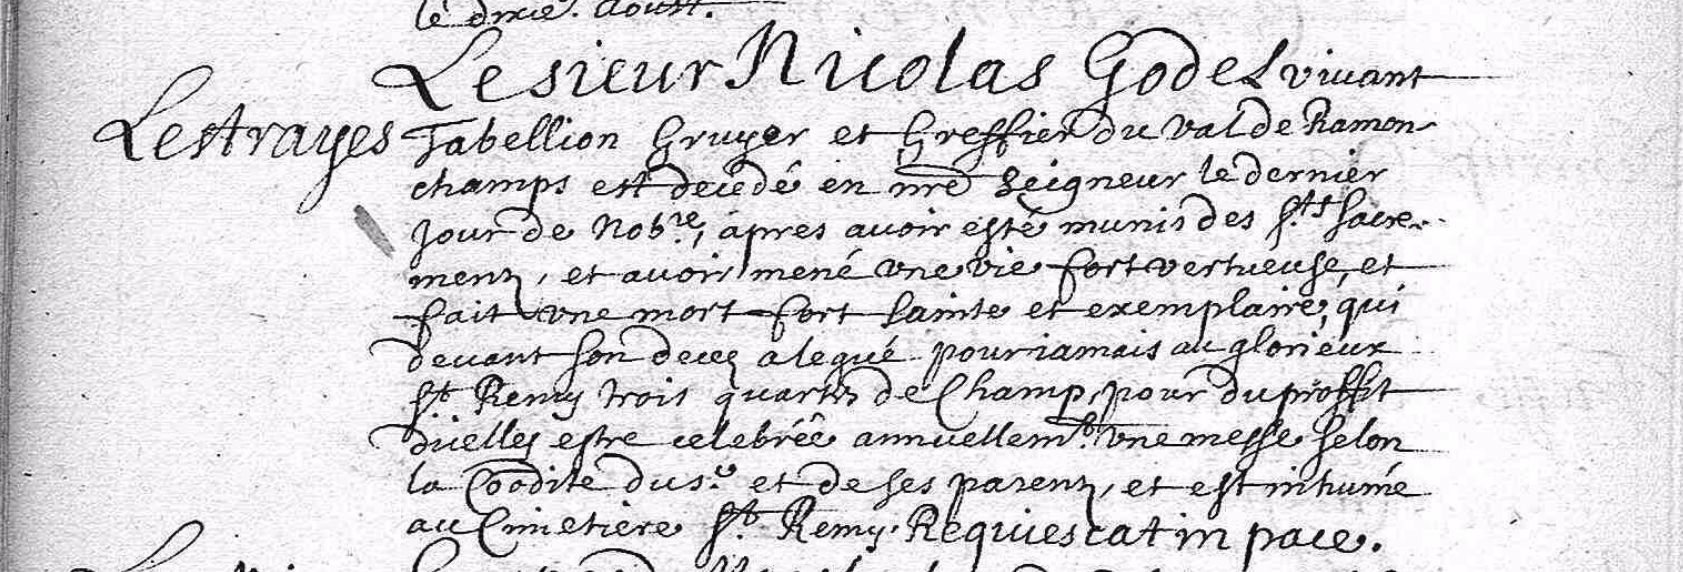 le dixie. Aoust.
Le sieur Nicolas Godel vivant
Lestrayes
Tabellion Gruyer et Greffier du val de Ramon-
champs est decedé en nre Seigneur le dernier
jour de Nobre, apres avoir esté munis des Sts Sacre-
mentz, et avoir mené une vie fort vertueuse, et
fait une mort fort sainte et exemplaire, qui
devant son decez a legué pour iamais au glorieux
St Remy trois quartz de Champ, pour du proffit
d'ielles estre celebrée annuellemt. une messe selon
la Coodite du sr. et de ses parentz, et est inhumé
au Cimetiere St Remy. Requiescat in pace.